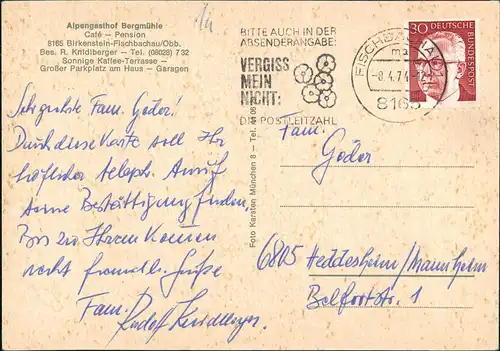 Alpengasthof Bergmühle
Café – Pension
8165 Birkenstein-Fischbachau/Obb.
Bes. R. Kridlberger – Tel. (08028) 732
Sonnige Kaffee-Terrasse –
Großer Parkplatz am Haus – Garagen
BITTE AUCH IN DER
ABSENDERANGABE:
VERGISS
MEIN
NICHT:
DIE POSTLEITZAHL
FISCHBACHAU
-8.4.74
8165
30 DEUTSCHE
BUNDESPOST
Sehr geehrte Fam. Göder!
Durch diese Karte soll Ihr
höflicher teleph. Anruf
seine Bestättigung finden,
Bis zu Ihrem Kommen
recht freundl. Grüße
Fam.
Rudolf
Foto Karsten München 8 – Tel.
Fam.
Göder
6805 Heddesheim/Mannheim
Belfortstr. 1